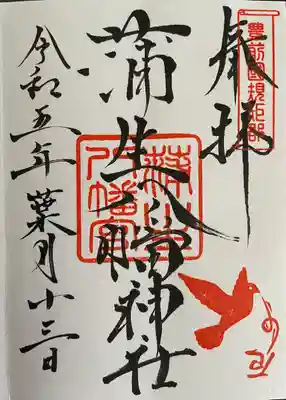 豊前國規矩郡
奉拝
蒲生八幡神社
蒲生
八幡宮
令和五年葉月廿三日